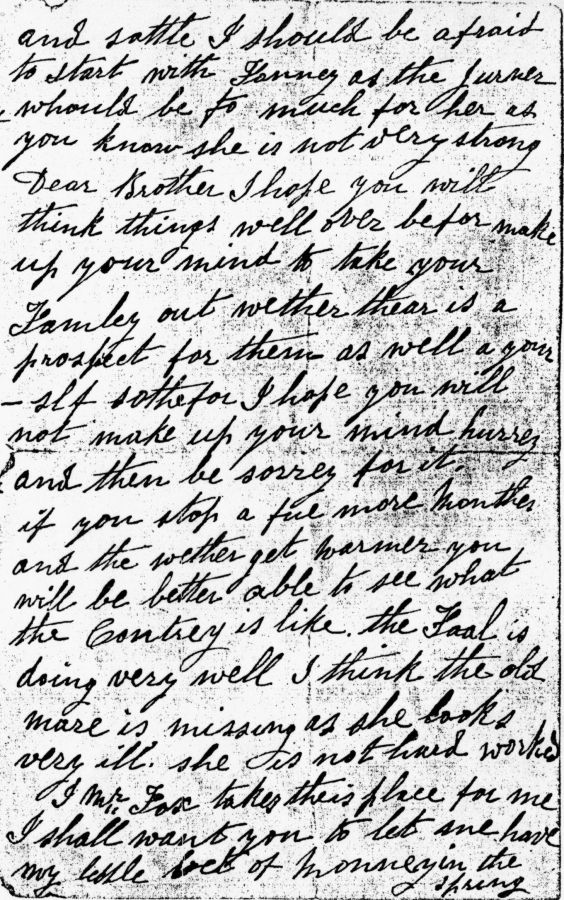 and sattle I should be afraid
to start with Fanney as the Jurner
whould be to much for her as
you know she is not very strong
Dear Brother I hope you will
think things well over befor make
up your mind to take your
Famley out wether thear is a
prospect for them as well a your
- slf sothefor I hope you will
not make up your mind hurrey
and then be sorrey for it.
if you stop a fue more Monthes
and the wether get warmer you
will be better able to see what
the Contrey is like. the Foal is
doing very well I think the old
mare is missing as she look's
very ill. she is not hard worked
I Mr. Fox takes theis place for me
I shall want you to let me have
my little bet of Monney in the
spring